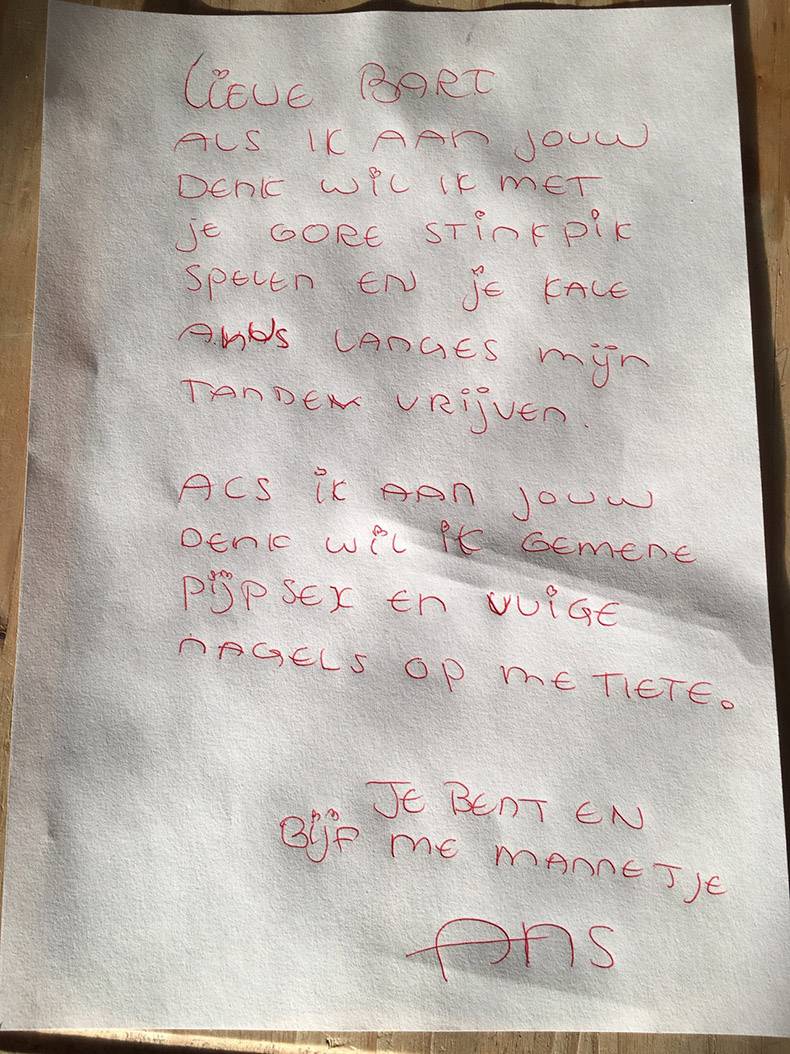 LIEVE BART
ALS IK AAN JOUW
DENK WIL IK MET
JE GORE STINKPIK
SPELEN EN JE KALE
ANUS LANGES MIJN
TANDEN VRIJVEN.
ALS IK AAN JOUW
DENK WIL IK GEMENE
PIJPSEX EN VUIGE
NAGELS OP ME TIETE.
JE BENT EN
BLIJF ME MANNETJE
ANS